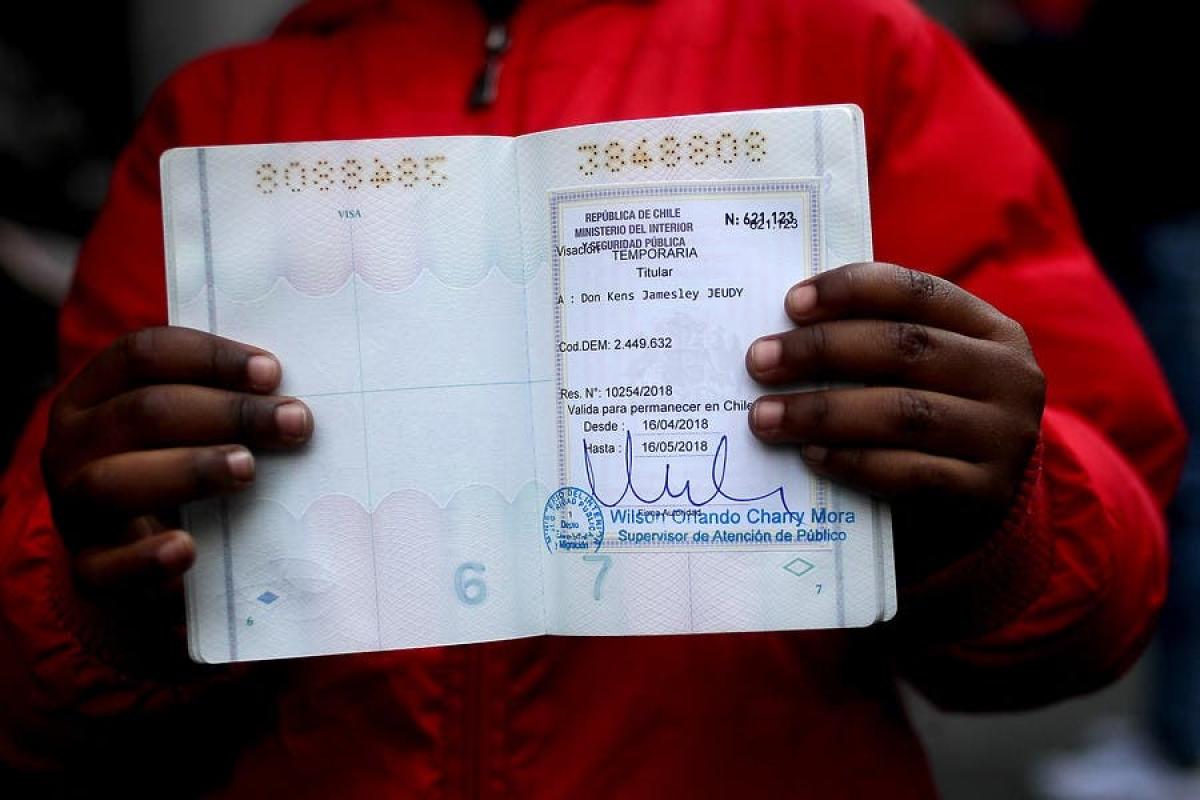 VISA
6
6
REPÚBLICA DE CHILE
MINISTERIO DEL INTERIOR
Y SEGURIDAD PÚBLICA
N: 621.123
621.123
Visación TEMPORARIA
Titular
A : Don Kens Jamesley JEUDY
Cod.DEM: 2.449.632
Res. N°: 10254/2018
Valida para permanecer en Chile
Desde : 16/04/2018
Hasta : 16/05/2018
Firma Autoridad
Wilson Orlando Charry Mora
Supervisor de Atención de Público
1
Depto
Migración
7
7